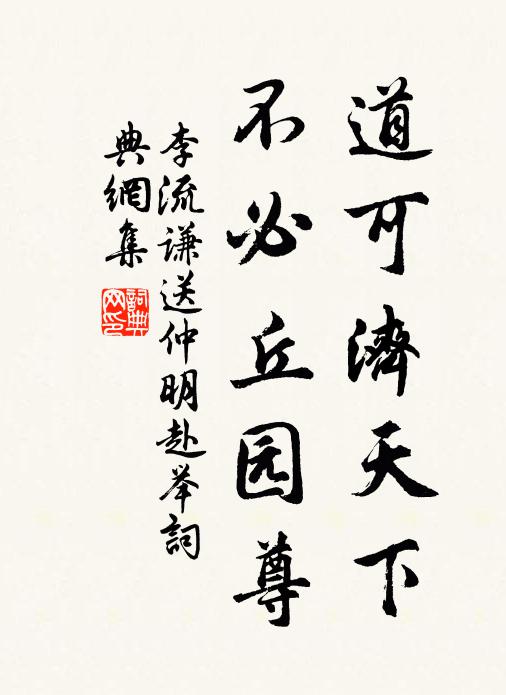 道可濟天下
不必丘园尊
李流谦送仲明赴举詞
典網集
詞典网印